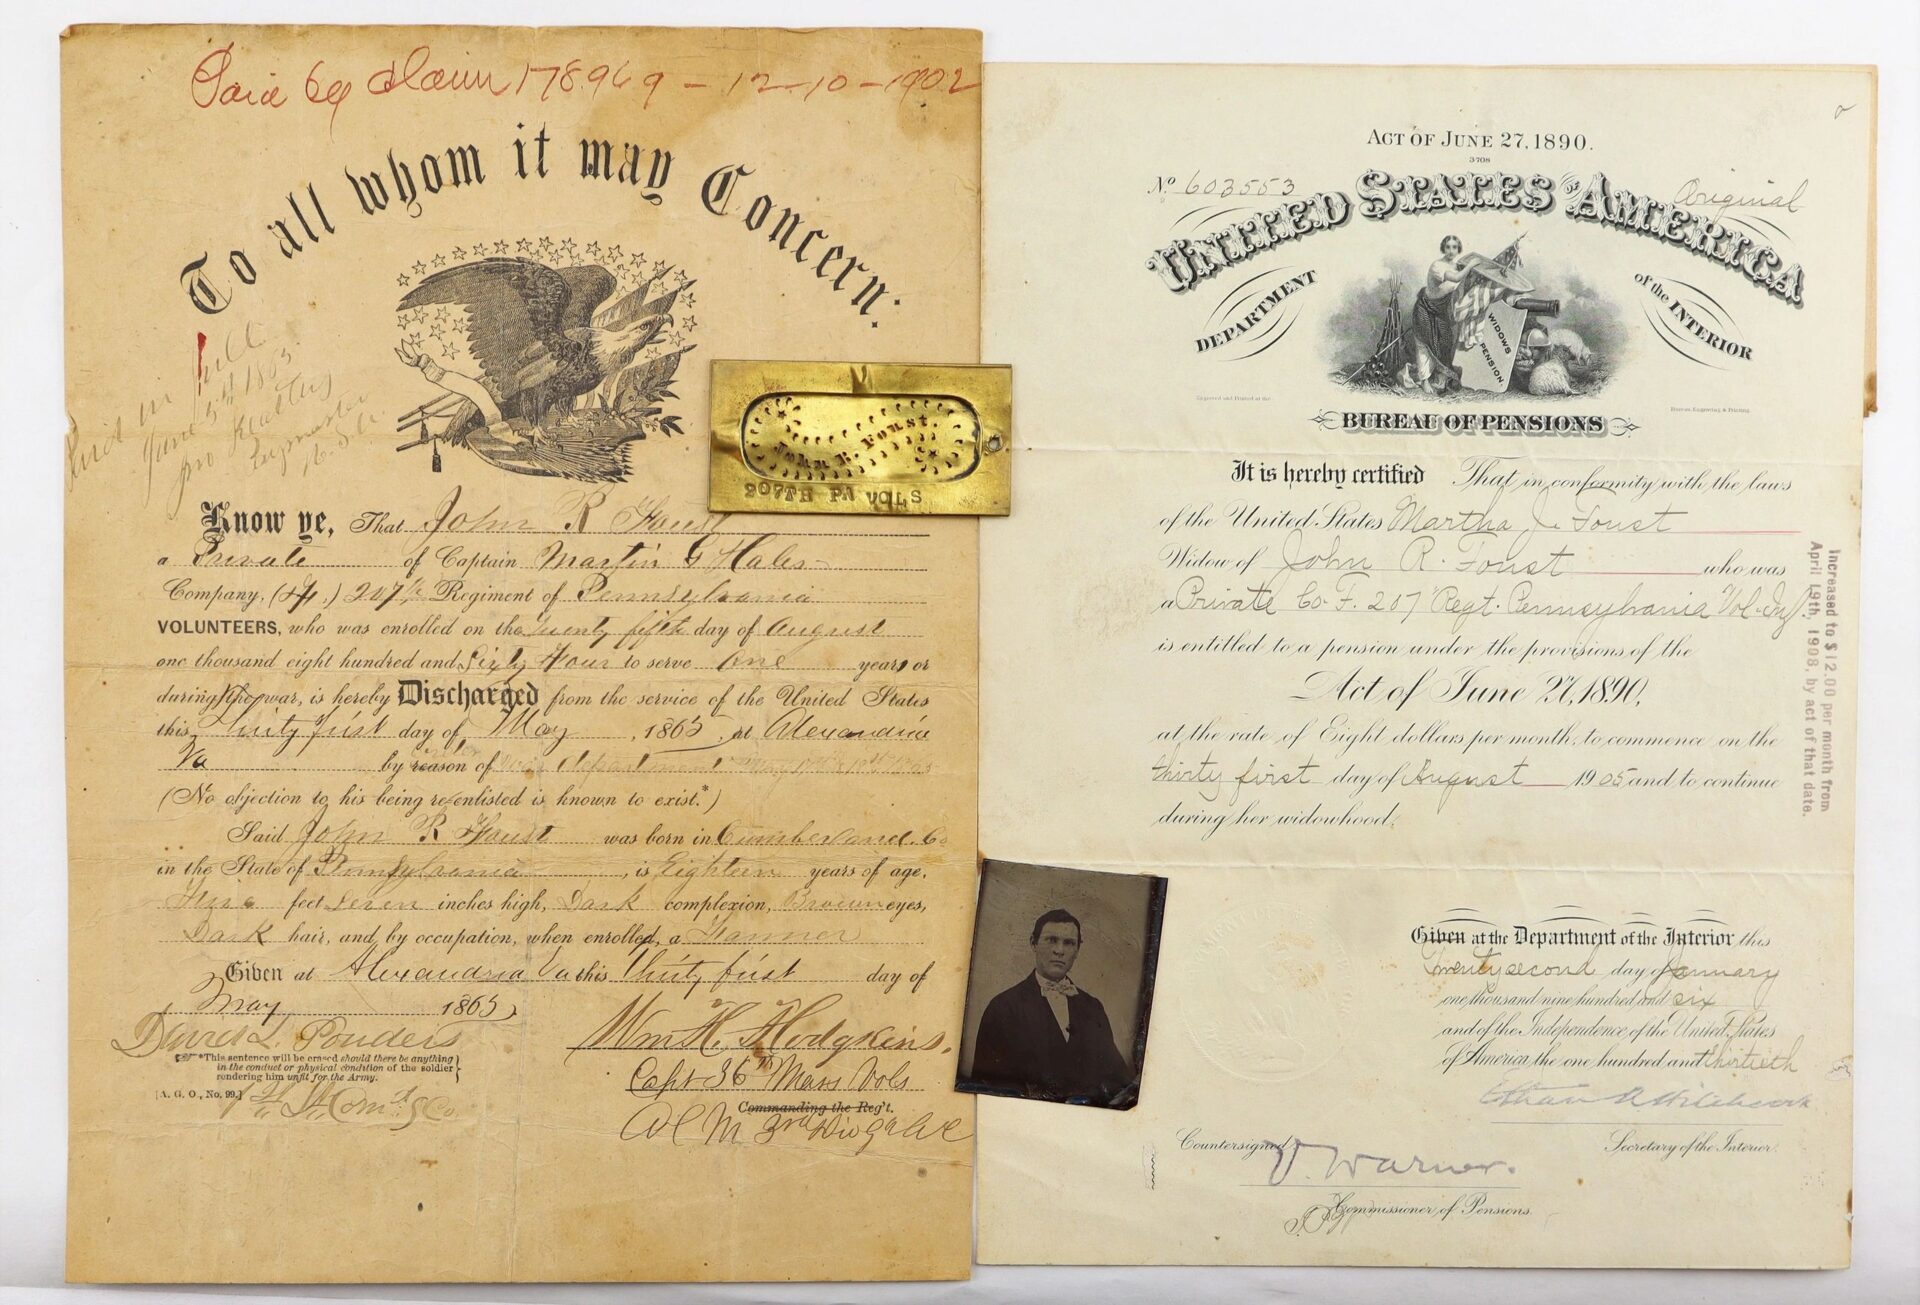 Paid by Claim 178969 - 12-10-1902
To all whom it may Concern:
Paid in full
June 5th 1865
Paymaster
U.S.A.
Know ye, That John R Foust
a Private of Captain Martin G Hales
Company, (F,) 207th Regiment of Pennsylvania
VOLUNTEERS, who was enrolled on the twenty fifth day of August
one thousand eight hundred and Sixty Four to serve One years or
during the war, is hereby Discharged from the service of the United States
this Thirty first day of May, 1865, at Alexandria
Va by reason of War Department
(No objection to his being re-enlisted is known to exist.*)
Said John R Foust was born in Cumberland Co
in the State of Pennsylvania, is Eighteen years of age,
Five feet Seven inches high, Dark complexion, Brown eyes,
Dark hair, and, by occupation, when enrolled, a Farmer
Given at Alexandria Va this Thirty first day of
May 1865
David L. Ponders
*This sentence will be erased should there be anything
in the conduct or physical condition of the soldier
rendering him unfit for the Army.
[A. G. O., No. 99.]
Wm H. Hodgkins.
Capt 36th Mass Vols
Commanding the Reg't.
A C M 3rd Div 9 A C
John R. Foust.
207TH PA VOLS
ACT OF JUNE 27, 1890.
3-708
No 603553
Original
UNITED STATES OF AMERICA
DEPARTMENT of the INTERIOR
WIDOWS PENSION
Engraved and Printed at the
Bureau, Engraving & Printing
BUREAU OF PENSIONS
It is hereby certified That in conformity with the laws
of the United States Martha J. Foust
Widow of John R. Foust who was
a Private Co. F. 207" Regt. Pennsylvania Vol. Inf.
is entitled to a pension under the provisions of the
Act of June 27, 1890,
at the rate of Eight dollars per month, to commence on the
thirty first day of August 1905 and to continue
during her widowhood.
Increased to $12.00 per month from
April 19th, 1908, by act of that date.
Given at the Department of the Interior this
Twenty second day of January
one thousand nine hundred and six
and of the Independence of the United States
of America the one hundred and thirtieth
Ethan A Hitchcock
Secretary of the Interior.
Countersigned
V. Warner.
Commissioner of Pensions.